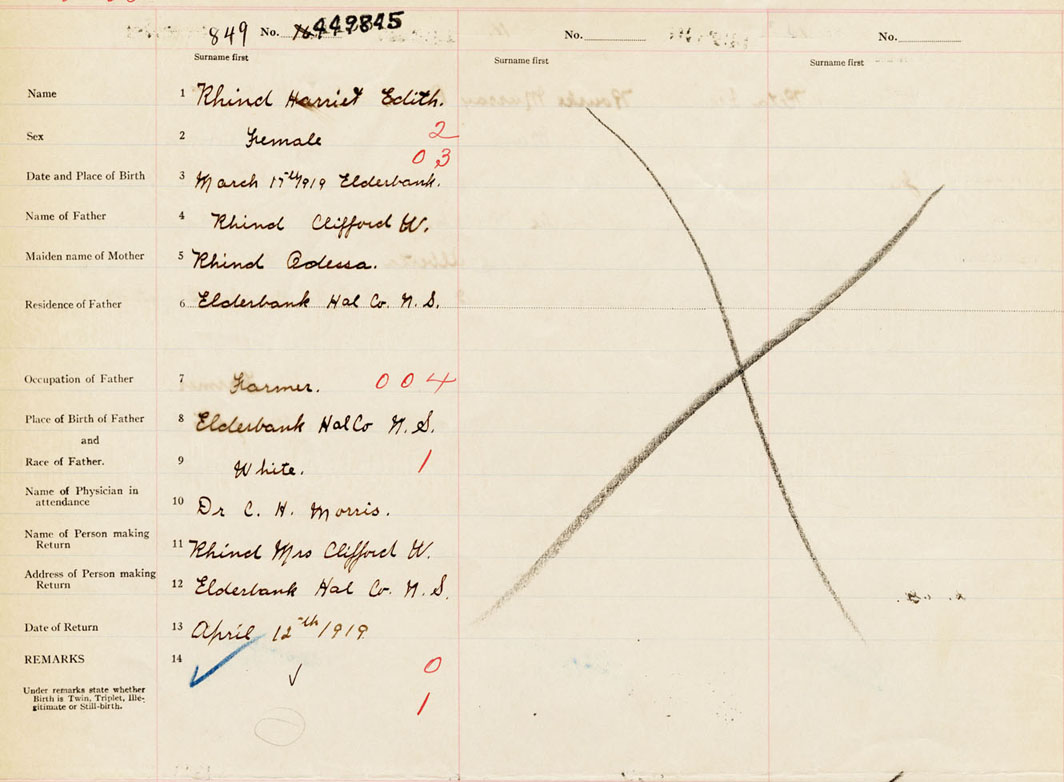 849 No. 449845 No. No.
Surname first Surname first Surname first
Name 1 Rhind Harriet Edith.
Sex 2 Female 2
0 3
Date and Place of Birth 3 March 17th/1919 Elderbank.
Name of Father 4 Rhind Clifford W.
Maiden name of Mother 5 Rhind Odessa.
Residence of Father 6 Elderbank Hal Co. N. S.
Occupation of Father 7 Farmer. 0 0 4
Place of Birth of Father 8 Elderbank Hal Co N. S.
and
Race of Father. 9 White. 1
Name of Physician in
attendance 10 Dr C. H. Morris.
Name of Person making
Return 11 Rhind Mrs Clifford W.
Address of Person making
Return 12 Elderbank Hal Co. N. S.
Date of Return 13 April 12th/1919
REMARKS 14 0
Under remarks state whether
Birth is Twin, Triplet, Ille-
gitimate or Still-birth. 1